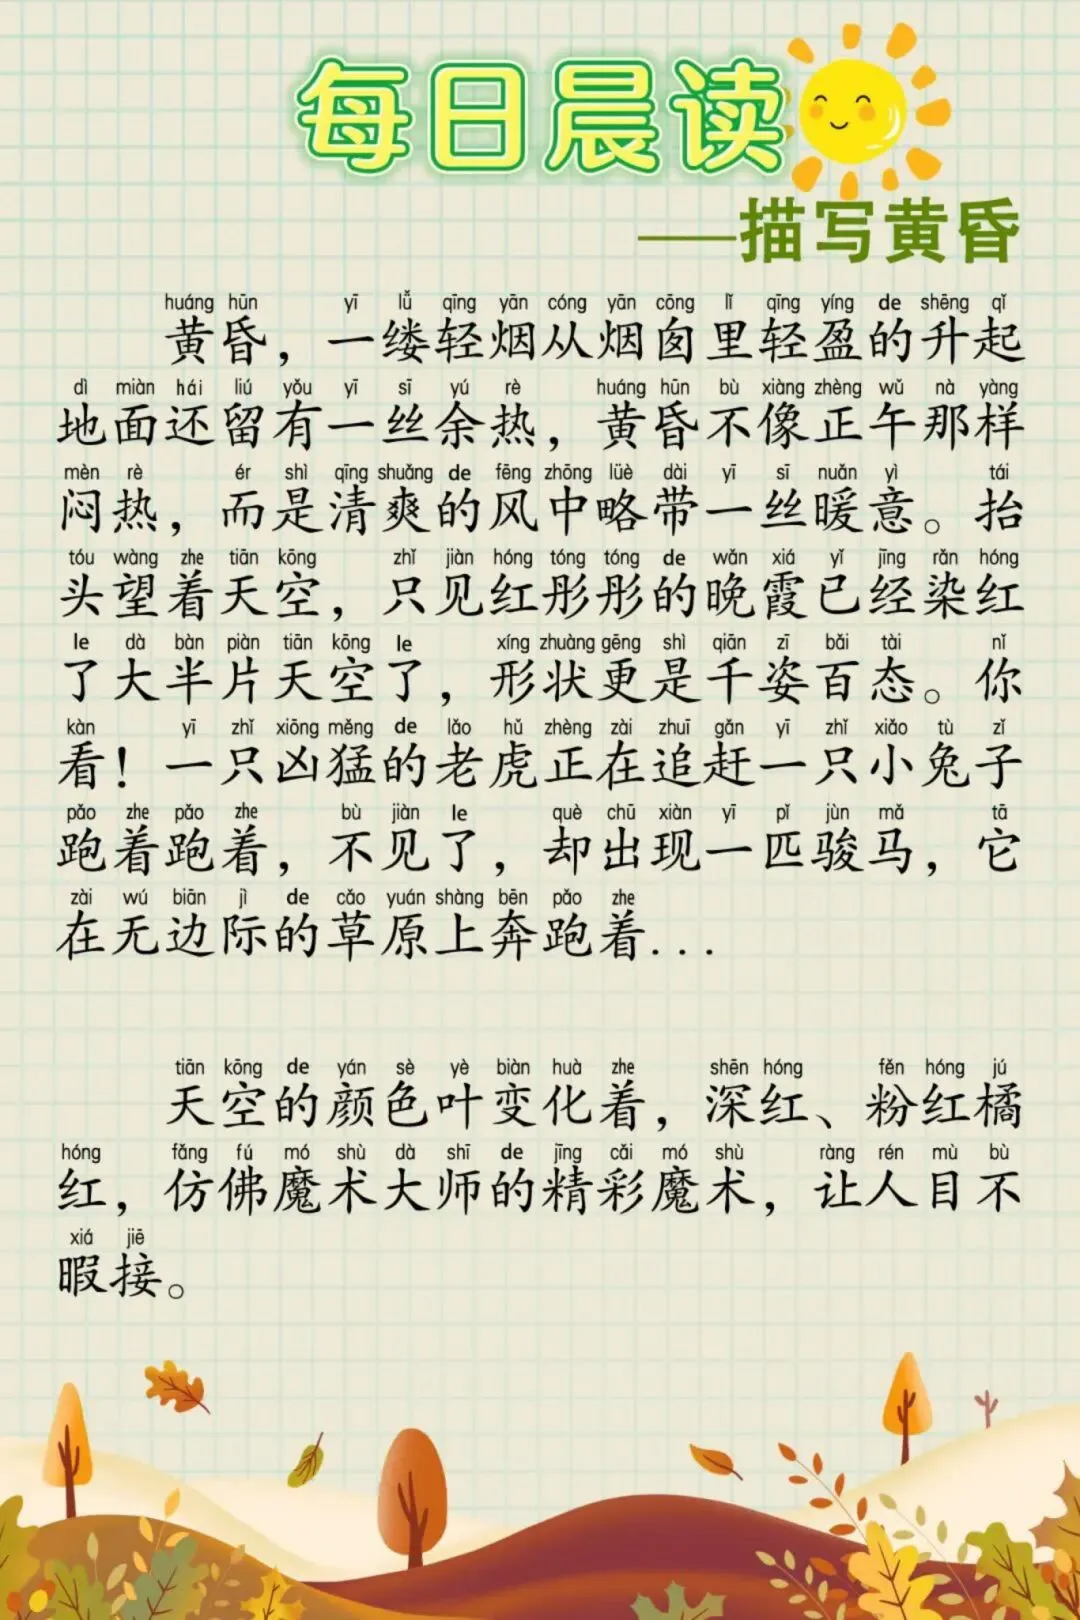 每日晨读
——描写黄昏
huáng hūn yī lǚ qīng yān cóng yān cōng lǐ qīng yíng de shēng qǐ
黄昏，一缕轻烟从烟囱里轻盈的升起
dì miàn hái liú yǒu yī sī yú rè huáng hūn bù xiàng zhèng wǔ nà yàng
地面还留有一丝余热，黄昏不像正午那样
mèn rè ér shì qīng shuǎng de fēng zhōng lüè dài yī sī nuǎn yì tái
闷热，而是清爽的风中略带一丝暖意。抬
tóu wàng zhe tiān kōng zhǐ jiàn hóng tóng tóng de wǎn xiá yǐ jīng rǎn hóng
头望着天空，只见红彤彤的晚霞已经染红
le dà bàn piàn tiān kōng le xíng zhuàng gēng shì qiān zī bǎi tài nǐ
了大半片天空了，形状更是千姿百态。你
kàn yī zhǐ xiōng měng de lǎo hǔ zhèng zài zhuī gǎn yī zhǐ xiǎo tù zǐ
看！一只凶猛的老虎正在追赶一只小兔子
pǎo zhe pǎo zhe bù jiàn le què chū xiàn yī pǐ jùn mǎ tā
跑着跑着，不见了，却出现一匹骏马，它
zài wú biān jì de cǎo yuán shàng bēn pǎo zhe
在无边际的草原上奔跑着...
tiān kōng de yán sè yè biàn huà zhe shēn hóng fěn hóng jú
天空的颜色叶变化着，深红、粉红橘
hóng fǎng fú mó shù dà shī de jīng cǎi mó shù ràng rén mù bù
红，仿佛魔术大师的精彩魔术，让人目不
xiá jiē
暇接。